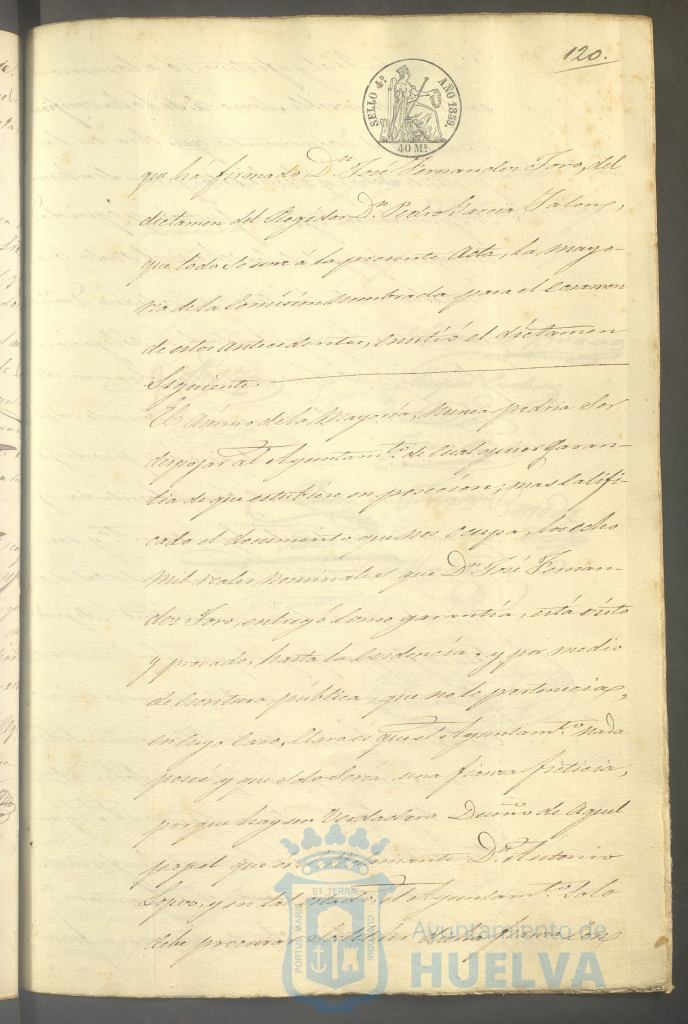 120.
SELLO 4º AÑO 1859.
40 Mˢ
que há firmado Dⁿ José Fernandez Toro, del
dictamen del Regidor Dⁿ Pedro Garcia Jalon,
que todo se une á la presente Acta, la mayo-
ria de la Comision nombrada para el
de estos antecedentes, emitió el dictamen
Siguiente.
El Animo de la Mayoria, nunca podria Ser
despojar al Ayuntamᵗᵒ de Cualquier Garan-
tia de que estubiere en posecion; mas Califi-
cado el documento que nos ocupa, los ocho
Mil reales nominales que Dⁿ José Fernan-
dez Toro, entregó como garantia, está visto
y provado hasta la Evidencia, y por medio
de Escritura pública, que no le pertenecia,
en Cuyo Caso, Claro es que el Ayuntamᵗᵒ Nada
poseé y que Solo Seria una fianza ficticia,
por que hay un Verdadero Dueño de Aquel
papel que es el Dⁿ Antonio
Lopez, y en tal estado, el Ayuntamᵗᵒ Solo
debe procurar
PORTUS MARIS ET TERRÆ CUSTODIA
Ayuntamiento de
HUELVA